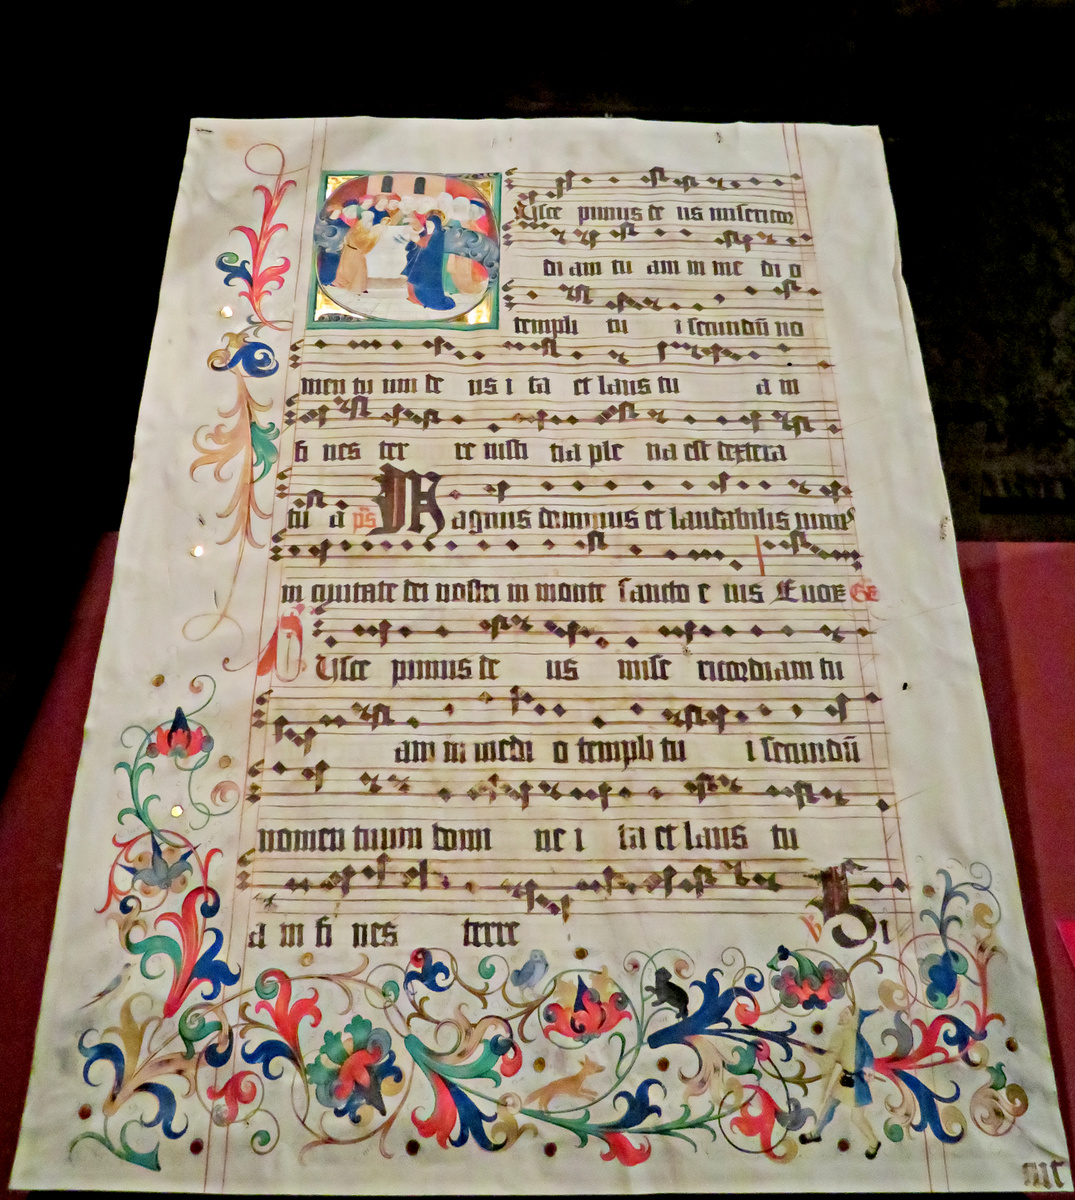 Usce pimus de us misericor
di am tu am in me di o
templi tu i secundũ no
men tu um de us i ta et laus tu a in
fi nes ter re iusti tia ple na est dextera
tu a ps Magnus dominus et laudabilis nimis
in civitate dei nostri in monte sancto e ius Euoae Gr̄
Usce pimus de us mise ricordiam tu
am in medi o templi tu i secundũ
nomen tuum domi ne i ta et laus tu
a in fi nes terre V Bi